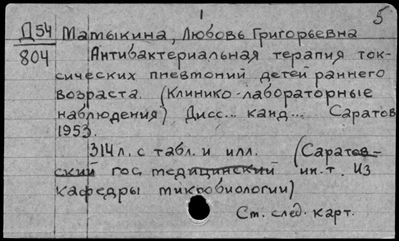 1 5
Д54 Матыкина, Любовь Григорьевна
804 Антибактериальная терапия ток-
сических пневмоний детей раннего
возраста. (Клинико-лабораторные
наблюдения) Дисс... канд... Саратов
1953.
314 л. с табл. и илл. (Саратов-
ский гос. медицинский ин-т. Из
кафедры микробиологии)
См. след. карт.